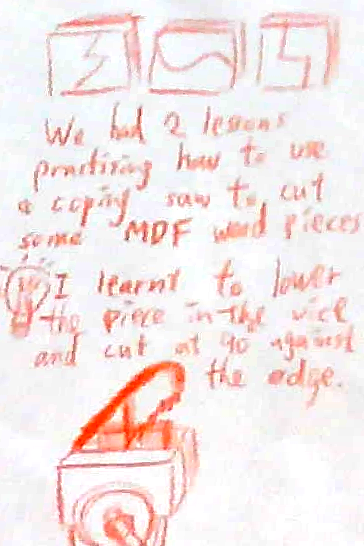 We had 2 lessons
practising how to use
a coping saw to cut
some MDF wood pieces
I learnt to lower
the piece in the vice
and cut at 90 against
the edge.